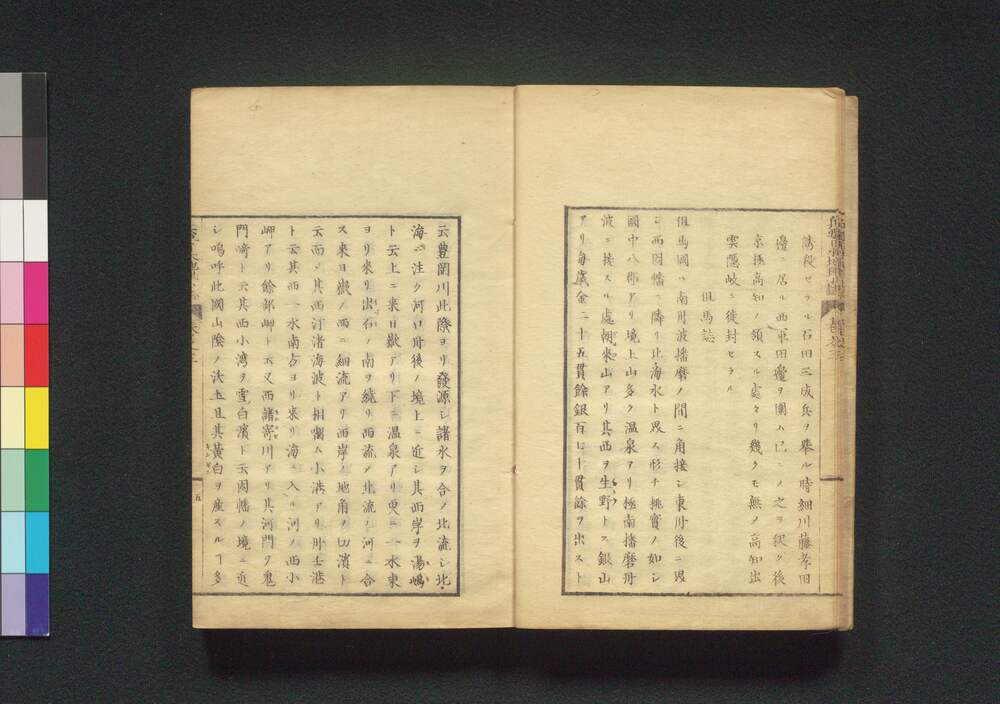 誘殺セラル石田三成兵ヲ擧ル時細川藤孝田
邊ニ居ル西軍田邊ヲ圍ム已ニノ之ヲ釈ク後
京極高知ノ領スル處タリ幾クモ無ノ高知出
雲隠岐ニ徙封セラル
但馬誌
但馬國ハ南丹波播磨ノ間ニ角接シ東丹後ニ界
シ西因幡ニ隣リ北海水ト界ス形チ桃實ノ如シ
國中八郡アリ境上山多ク温泉アリ極南播磨丹
波ニ挨スル處朝来山アリ其西ヲ生野トス銀山
アリ毎歳金二十五貫餘銀百七十貫餘ヲ出スト
云豊岡川此際ヨリ發源シ諸水ヲ合ノ北流シ北
海ニ注ク河口丹後ノ境上ニ近シ其西岸ヲ湯嶋
ト云上ニ来日嶽アリ下ニ温泉アリ更ニ一水東
ヨリ来リ出石ノ南ヲ繞リ西流メ北流ノ河ニ合
ス来日嶽ノ西ニ細流アリ西岸ノ地角ヲ切濱ト
云而シ其西汀渚海波ト相囓ム小港アリ丹土港
ト云其西一水南方ヨリ来リ海ニ入ル河ノ西小
岬アリ餘部岬ト云又西諸寄川アリ其河門ヲ鬼
門﨑ト云其西小湾ヲ雪白濱ト云因幡ノ境ニ近
シ嗚呼此國山陰ノ
且其黄白ヲ産スルヿ多
五